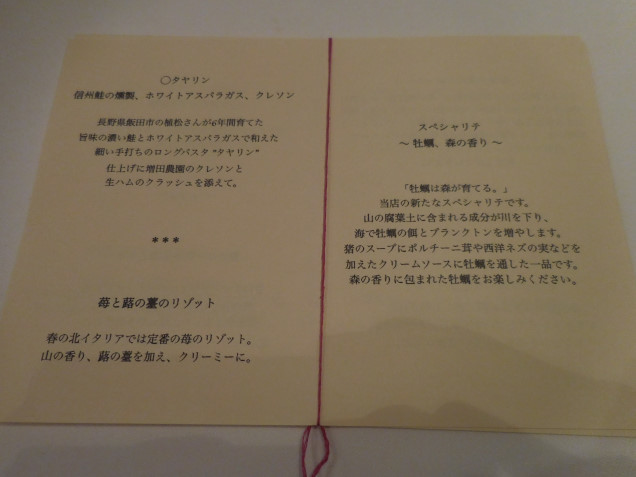 〇タヤリン
信州鮭の燻製、ホワイトアスパラガス、クレソン
長野県飯田市の植松さんが6年間育てた
旨味の濃い鮭とホワイトアスパラガスで和えた
細い手打ちのロングパスタ“タヤリン”
仕上げに増田農園のクレソンと
生ハムのクラッシュを添えて。
＊＊＊
苺と蕗の薹のリゾット
春の北イタリアでは定番の苺のリゾット。
山の香り、蕗の薹を加え、クリーミーに。
スペシャリテ
～ 牡蠣、森の香り ～
「牡蠣は森が育てる。」
当店の新たなスペシャリテです。
山の腐葉土に含まれる成分が川を下り、
海で牡蠣の餌とプランクトンを増やします。
猪のスープにポルチーニ茸や西洋ネズの実などを
加えたクリームソースに牡蠣を通した一品です。
森の香りに包まれた牡蠣をお楽しみください。